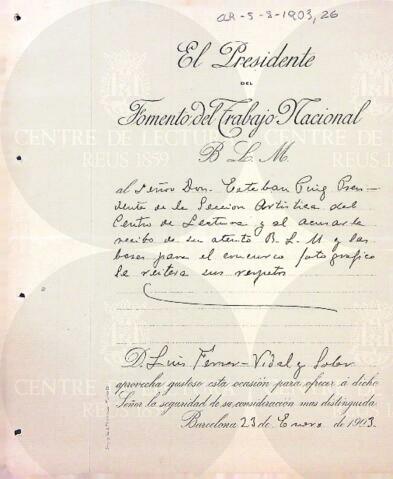 AR-5-3-1903, 26
El Presidente
DEL
Fomento del Trabajo Nacional
B. L. M.
al Señor Don. Esteban Puig Presi-
dente de la Seccion Artística del
Centro de Lectura y al acusarle
recibo de su atento B. L. M y las
bases para el concurso fotografico
le reitera sus respetos
D. Luis Ferrer-Vidal y Soler
aprovecha gustoso esta ocasión para ofrecer á dicho
Señor la seguridad de su consideración mas distinguida.
Barcelona 23 de Enero de 1903.
CENTRE DE LECTURA
REUS 1859